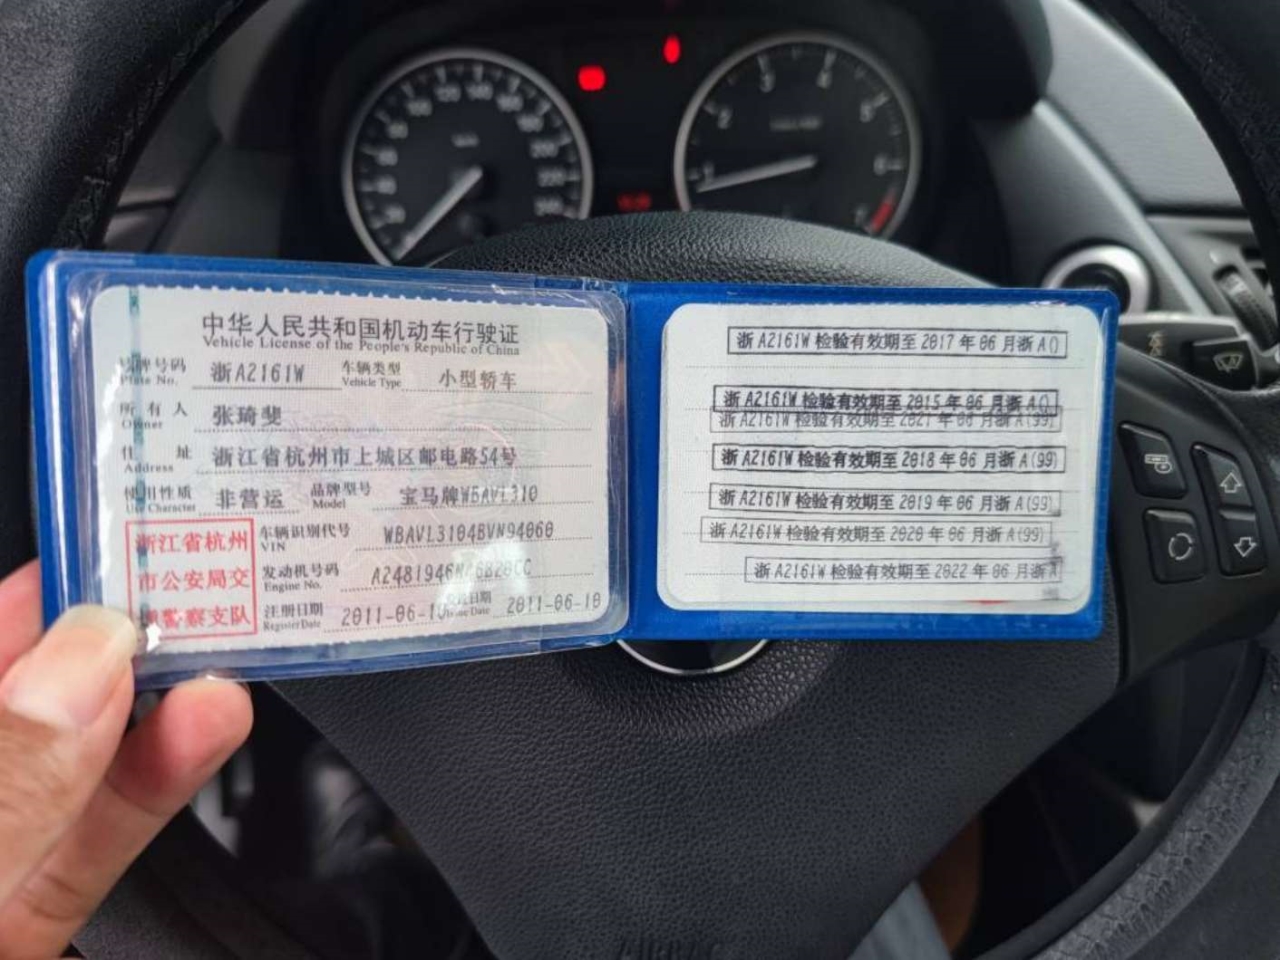 中华人民共和国机动车行驶证
Vehicle License of the People's Republic of China
号牌号码 浙A2161W 车辆类型 小型轿车
Plate No. Vehicle Type
所有人 张琦斐
Owner
住址 浙江省杭州市上城区邮电路54号
Address
使用性质 非营运 品牌型号 宝马牌WBAVL310
Use Character Model
浙江省杭州
市公安局交
警察支队
车辆识别代号 WBAVL3104BVN94060
VIN
发动机号码
Engine No.
注册日期 2011-06-10 日期 2011-06-10
Register Date Issue Date
浙A2161W检验有效期至2017年06月浙A()
浙A2161W检验有效期至2015年06月浙A()
浙A2161W检验有效期至2021年06月浙A(99)
浙A2161W检验有效期至2018年06月浙A(99)
浙A2161W检验有效期至2019年06月浙A(99)
浙A2161W检验有效期至2020年06月浙A(99)
浙A2161W检验有效期至2022年06月浙A